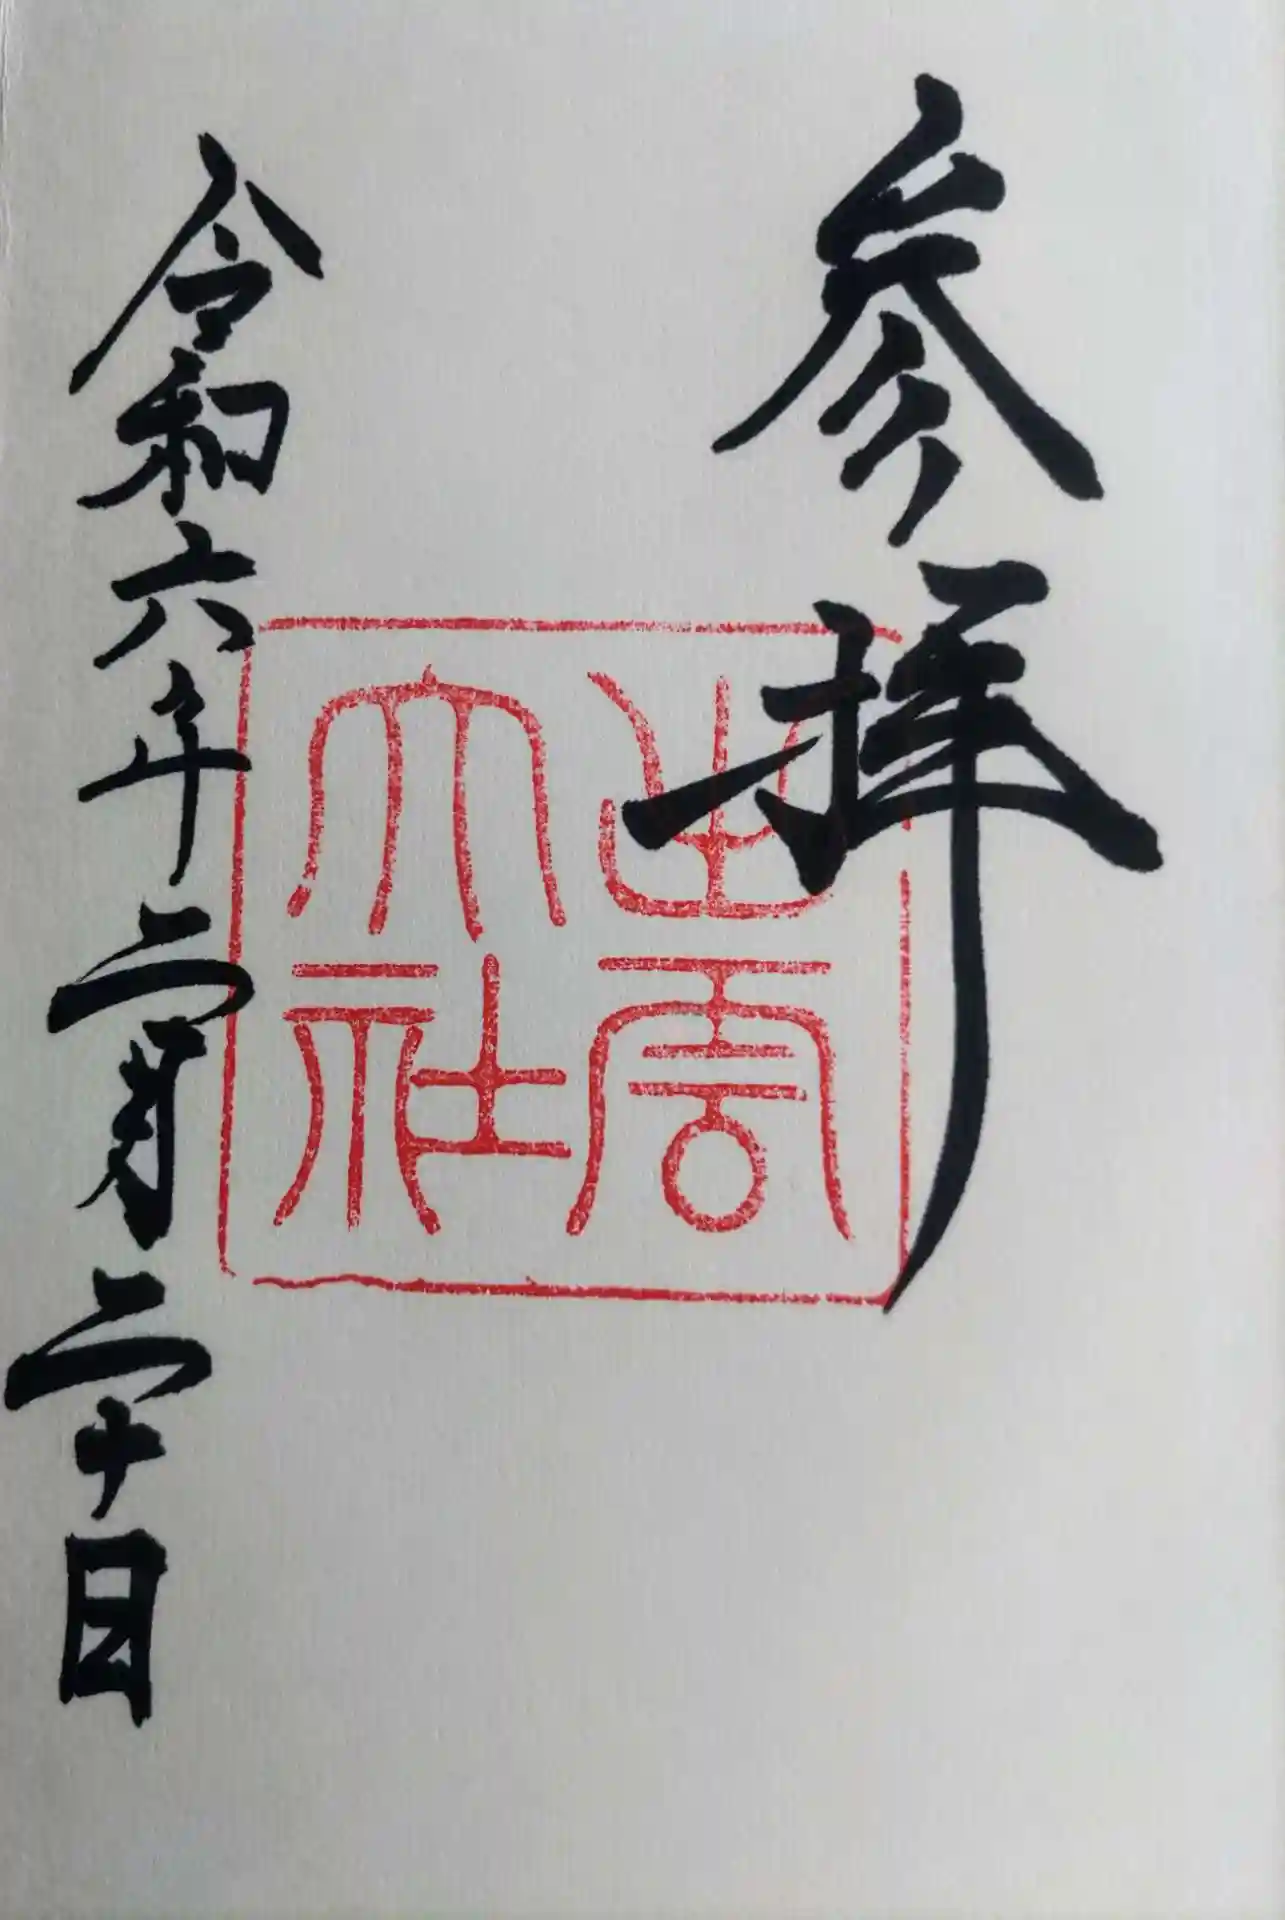 参拝
出雲
大社
令和六年二月二十日